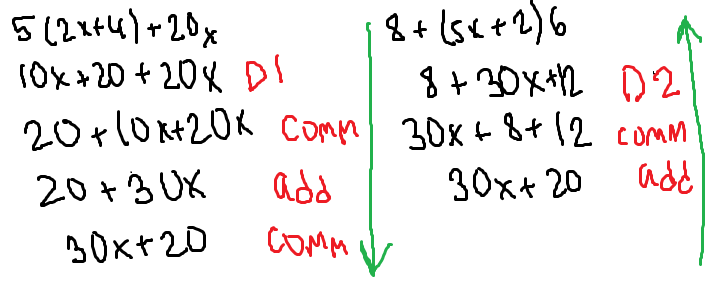 5(2x+4)+20x
10x+20+20x D1
20+10x+20x comm
20+30x add
30x+20 comm
8+(5x+2)6
8+30x+12 D2
30x+8+12 comm
30x+20 add